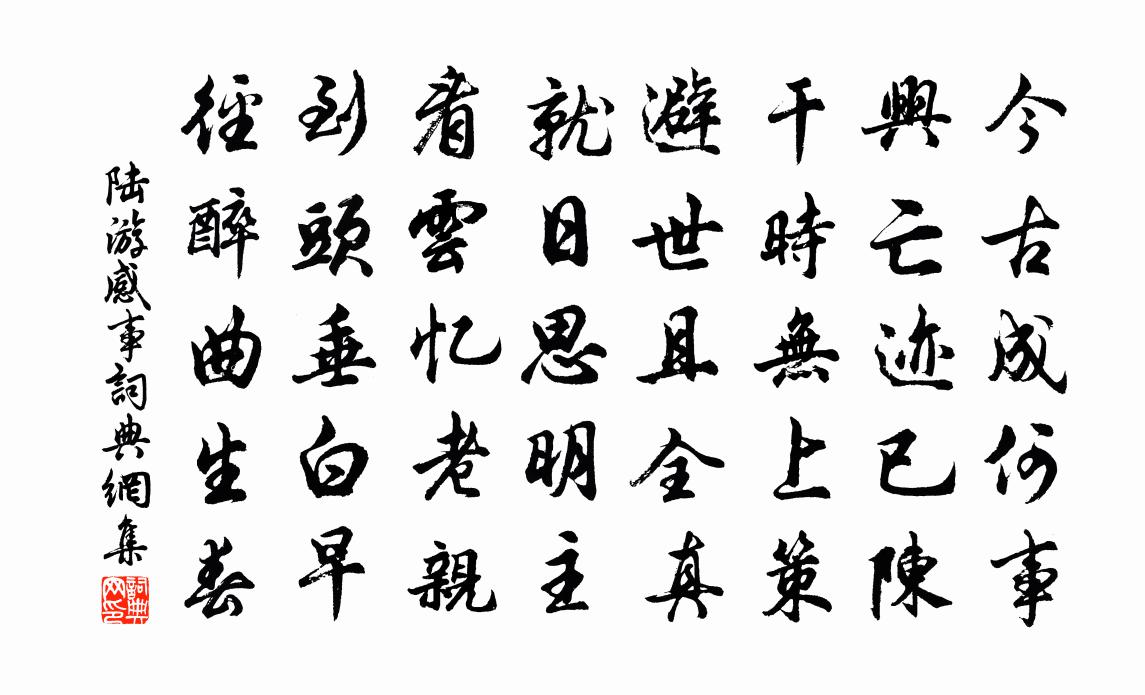 今古成何事
興亡迹已陳
干時無上策
避世且全真
就日思明主
看雲忆老親
到頭垂白早
徑醉曲生春
陸游感事詞典網集
詞典网印